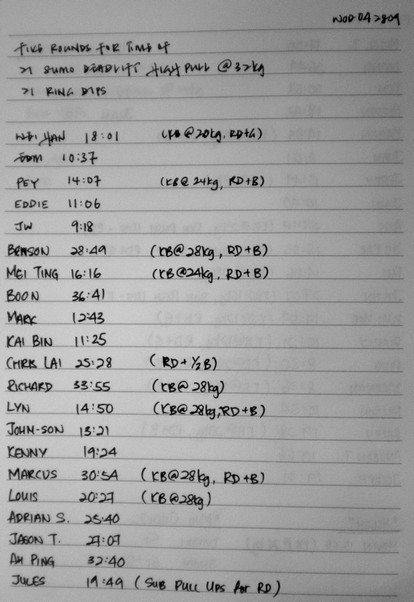 WOD 042809
FIVE ROUNDS FOR TIME OF
21 SUMO DEADLIFT HIGH PULL @ 32kg
21 RING DIPS
WEI HAN 18:01 (KB @ 20kg, RD+G)
EDM 10:37
PEY 14:07 (KB @ 24kg, RD+B)
EDDIE 11:06
JW 9:18
BENSON 28:49 (KB@28kg, RD+B)
MEI TING 16:16 (KB@24kg, RD+B)
BOON 36:41
MARK 12:43
KAI BIN 11:25
CHRIS LAI 25:28 (RD+½B)
RICHARD 33:55 (KB@ 28kg)
LYN 14:50 (KB@28kg, RD+B)
JOHN-SON 13:21
KENNY 19:24
MARCUS 30:54 (KB@28kg, RD+B)
LOUIS 20:27 (KB@28kg)
ADRIAN S. 25:40
JASON T. 27:07
AH PING 32:40
JULES 19:49 (SUB PULL UPS for RD)